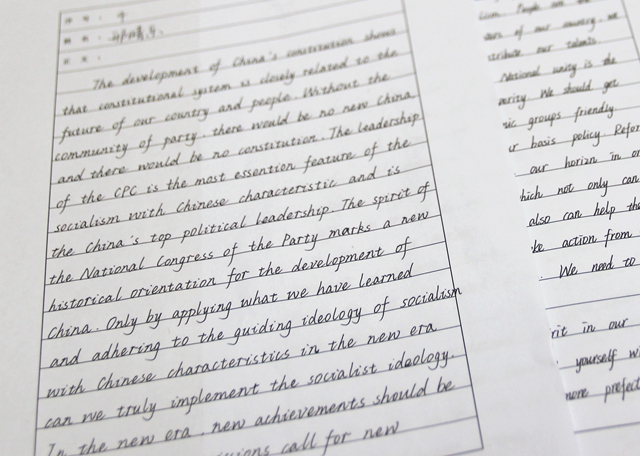 The development of China's constitution shows
that constitutional system is closely related to the
future of our country and people. Without the
community of party, there would be no new China,
and there would be no constitution. The leadership
of the CPC is the most essention feature of the
socialism with Chinese characteristic and is
the China's top political leadership. The spirit of
the National Congress of the Party marks a new
historical orientation for the development of
China. Only by applying what we have learned
and adhering to the guiding ideology of socialism
with Chinese characteristics in the new era
can we truly implement the socialist ideology.
In the new era, new achievements should be
call for new
People
of our country, we
our talents
National unity is the
We should get
groups friendly
basis policy Refor
our horizn in
hich not only can
also can help the
action from
We need to
rit in our
yourself
more prefect